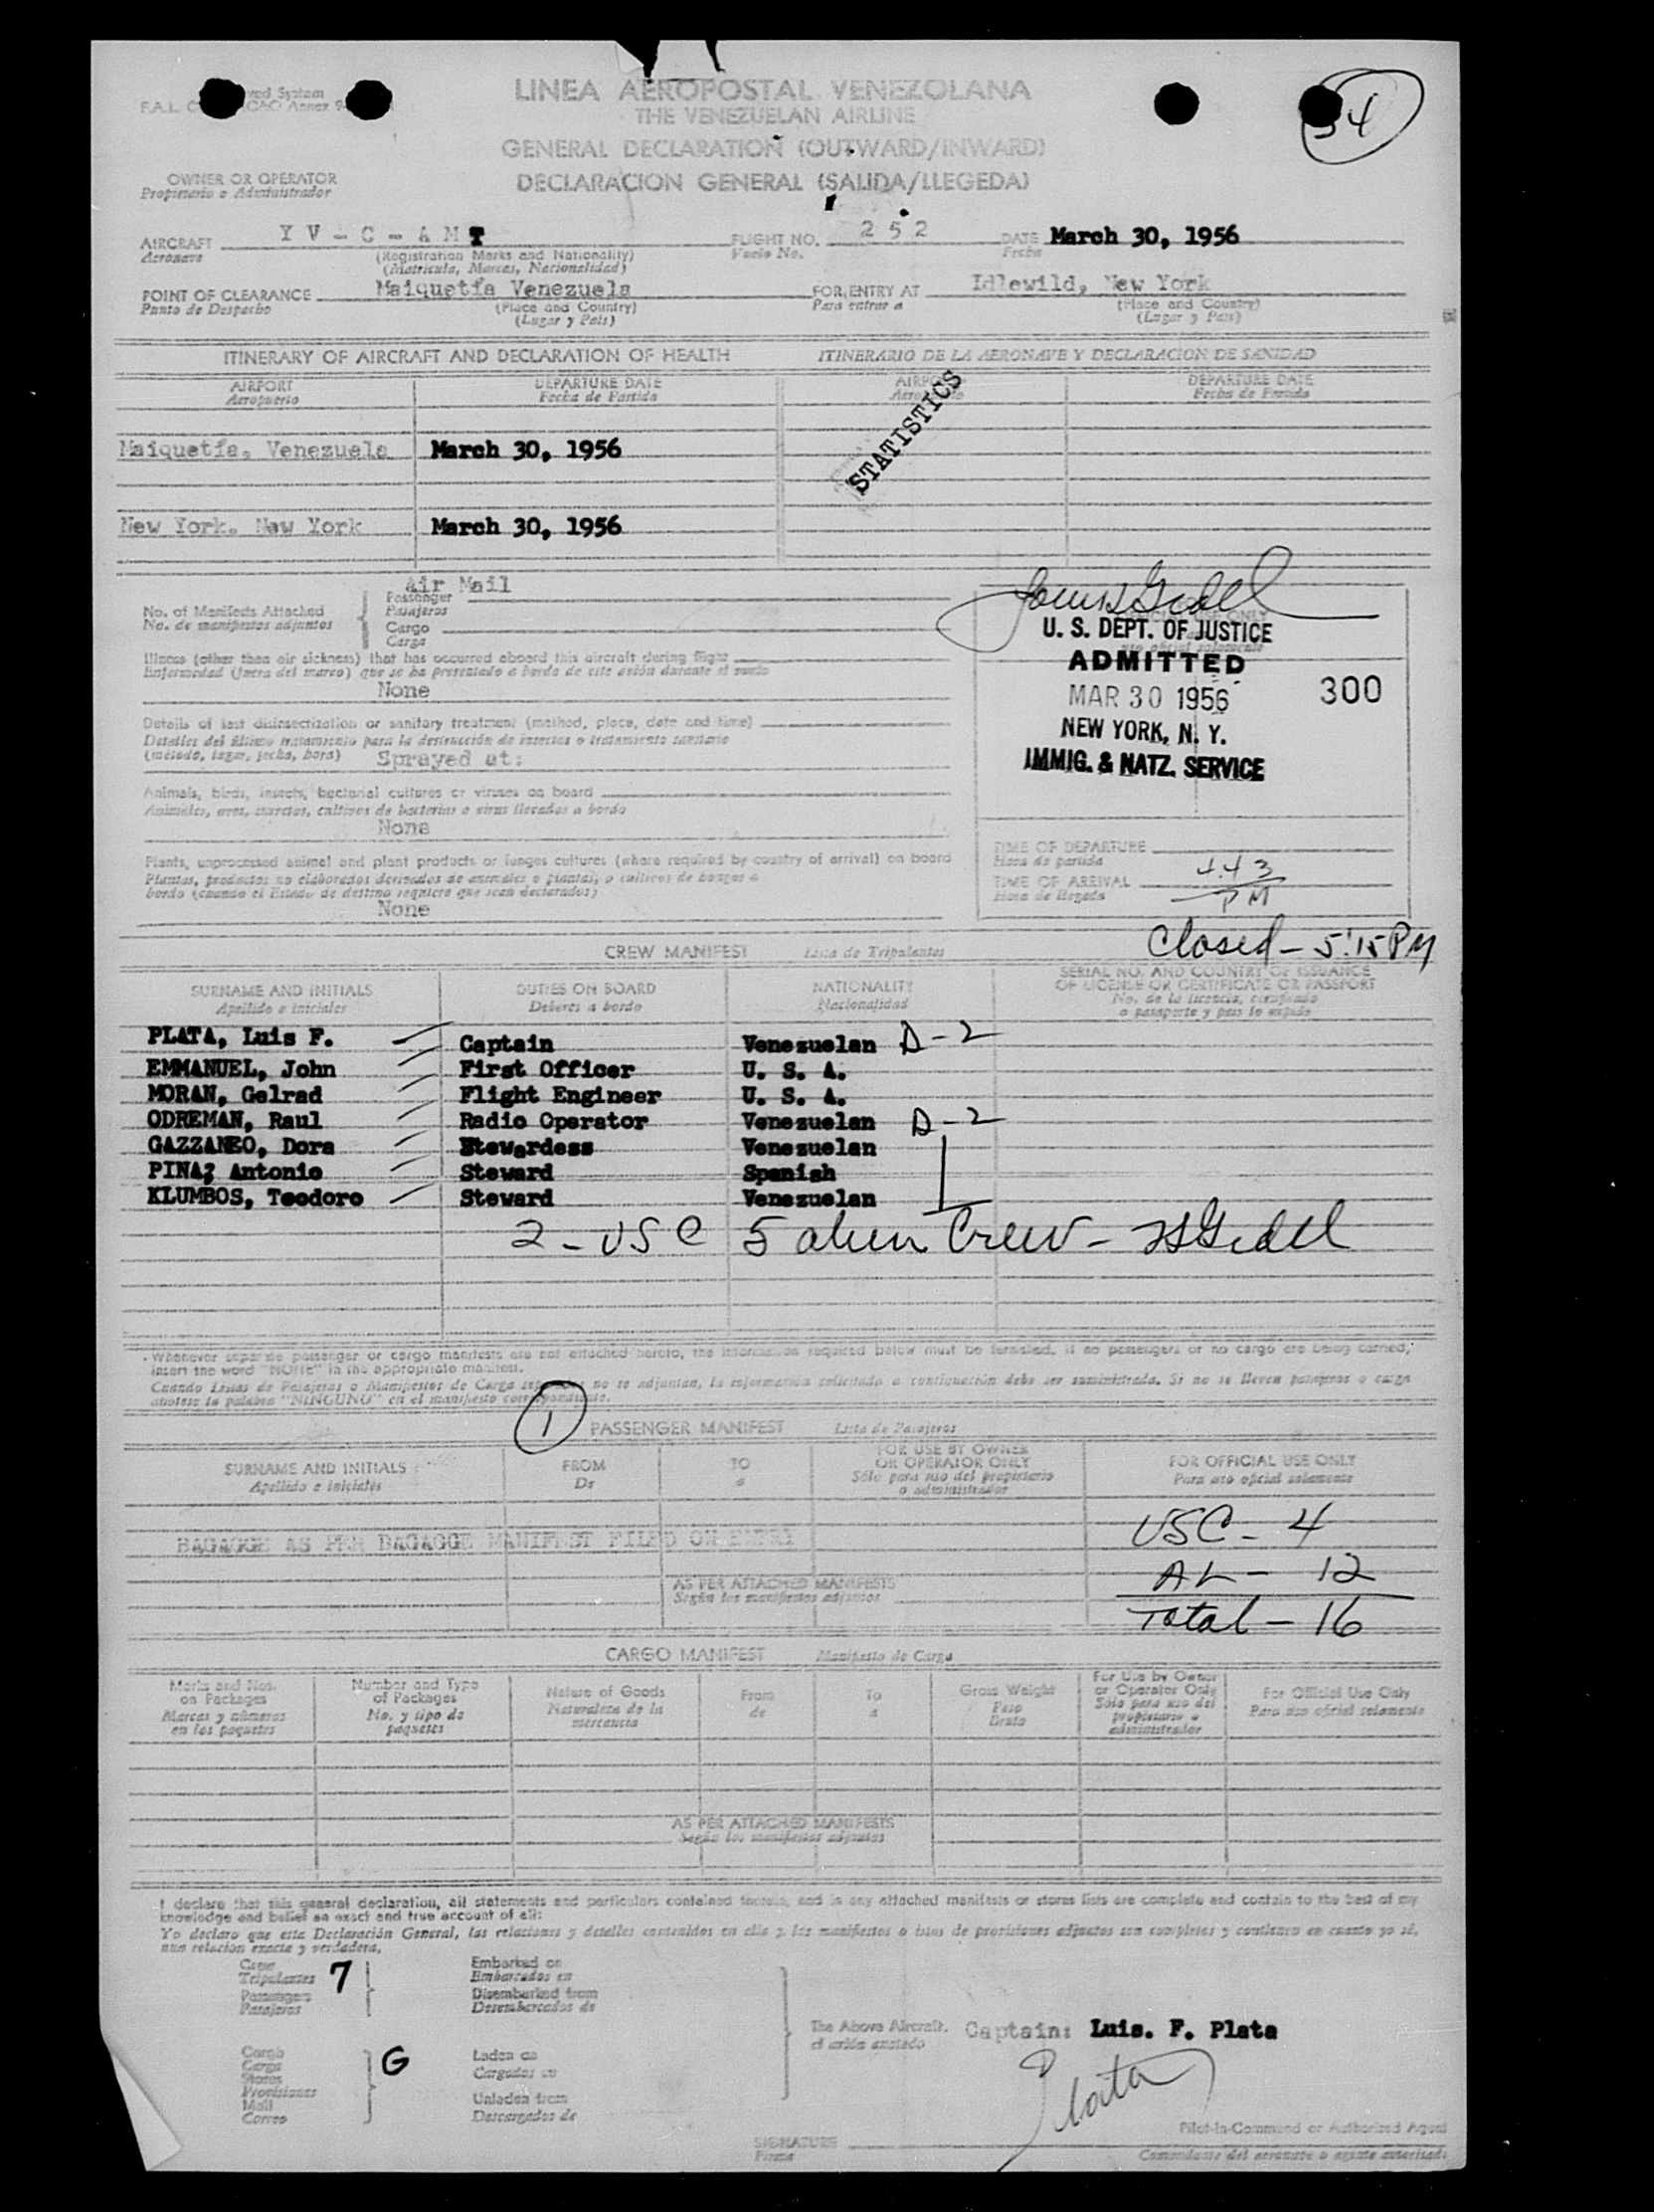 LINEA AEROPOSTAL VENEZOLANA
THE VENEZUELAN AIRLINE
GENERAL DECLARATION (OUTWARD/INWARD)
DECLARACION GENERAL (SALIDA/LLEGEDA)
54
OWNER OR OPERATOR
Propietario o Administrador
AIRCRAFT YV-C-AMT FLIGHT NO. 252 DATE March 30, 1956
Aeronave (Registration Marks and Nationality) Vuelo No. Fecha
(Matricula, Marcas, Nacionalidad)
POINT OF CLEARANCE Maiquetía Venezuela FOR ENTRY AT Idlewild, New York
Punto de Despacho (Place and Country) Para entrar a (Place and Country)
(Lugar y País) (Lugar y País)
ITINERARY OF AIRCRAFT AND DECLARATION OF HEALTH ITINERARIO DE LA AERONAVE Y DECLARACION DE SANIDAD
AIRPORT DEPARTURE DATE DEPARTURE DATE
Aeropuerto Fecha de Partida Fecha de Partida
STATISTICS
Maiquetía, Venezuela March 30, 1956
New York. New York March 30, 1956
Air Mail
No. of Manifests Attached Passenger
No. de manifiestos adjuntos Pasajeros
Cargo
Carga
Illness (other than air sickness) that has occurred aboard this aircraft during flight
Enfermedad (fuera del mareo) que se ha presentado a bordo de este avión durante el vuelo
None
Details of last disinsectization or sanitary treatment (method, place, date and time)
Detalles del último tratamiento para la destrucción de insectos o tratamiento sanitario
(método, lugar, fecha, hora) Sprayed at:
Animals, birds, insects, bacterial cultures or viruses on board
Animales, aves, insectos, cultivos de bacterias o virus llevados a bordo
None
Plants, unprocessed animal and plant products or fungus cultures (where required by country of arrival) on board
Plantas, productos no elaborados derivados de animales o plantas, o cultivos de hongos a
bordo (cuando el Estado de destino requiere que sean declarados)
None
U. S. DEPT. OF JUSTICE
ADMITTED
MAR 30 1956 300
NEW YORK, N. Y.
IMMIG. & NATZ. SERVICE
TIME OF DEPARTURE
Hora de partida
TIME OF ARRIVAL 4.43
Hora de llegada PM
Closed - 5:15 PM
CREW MANIFEST Lista de Tripulantes
SURNAME AND INITIALS DUTIES ON BOARD NATIONALITY SERIAL NO. AND COUNTRY OF ISSUANCE
OF LICENSE OR CERTIFICATE OR PASSPORT
Apellido e iniciales Deberes a bordo Nacionalidad No. de la licencia, certificado
o pasaporte y país lo expide
PLATA, Luis F. Captain Venezuelan D-2
EMMANUEL, John First Officer U. S. A.
MORAN, Gelrad Flight Engineer U. S. A.
ODREMAN, Raul Radio Operator Venezuelan D-2
GAZZANEO, Dora Stewardess Venezuelan
PINA; Antonio Steward Spanish
KLUMBOS, Teodoro Steward Venezuelan
2 - USC 5 alien Crew -
Whenever separate passenger or cargo manifests are not attached hereto, the information required below must be furnished. If no passengers or no cargo are being carried,
insert the word "NONE" in the appropriate manifest.
Cuando Listas de Pasajeros o Manifiestos de Carga no se adjuntan, la información solicitada a continuación debe ser suministrada. Si no se lleven pasajeros o carga
anótese la palabra "NINGUNO" en el manifiesto correspondiente.
1 PASSENGER MANIFEST Lista de Pasajeros
SURNAME AND INITIALS FROM TO FOR USE BY OWNER FOR OFFICIAL USE ONLY
OR OPERATOR ONLY
Apellido e iniciales De a Sólo para uso del propietario Para uso oficial solamente
o administrador
BAGAGGE AS PER BAGAGGE MANIFEST FILED ON ENTRY
USC - 4
AL - 12
Total - 16
AS PER ATTACHED MANIFESTS
Según los manifiestos adjuntos
CARGO MANIFEST Manifiesto de Carga
Marks and Nos. Number and Type Nature of Goods From To Gross Weight For Use by Owner For Official Use Only
on Packages of Packages or Operator Only
Marcas y números No. y tipo de Naturaleza de la de a Peso Sólo para uso del Para uso oficial solamente
en los paquetes paquetes mercancía Bruto propietario o
administrador
AS PER ATTACHED MANIFESTS
Según los manifiestos adjuntos
I declare that this general declaration, all statements and particulars contained therein, and in any attached manifests or stores lists are complete and contain to the best of my
knowledge and belief an exact and true account of all:
Yo declaro que esta Declaración General, las relaciones y detalles contenidos en ella y los manifiestos o listas de provisiones adjuntos son completos y contienen en cuanto yo sé,
una relación exacta y verdadera.
Crew Embarked on
Tripulantes 7 Embarcados en
Passengers Disembarked from
Pasajeros Desembarcados de
The Above Aircraft. Captain: Luis. F. Plata
el avión anotado
Cargo Laden on
Carga G Cargados en
Stores
Provisiones Unladen from
Mail Descargados de
Correo
Plata
Pilot-in-Command or Authorized Agent
SIGNATURE
Firma Comandante del aeronave o agente autorizado